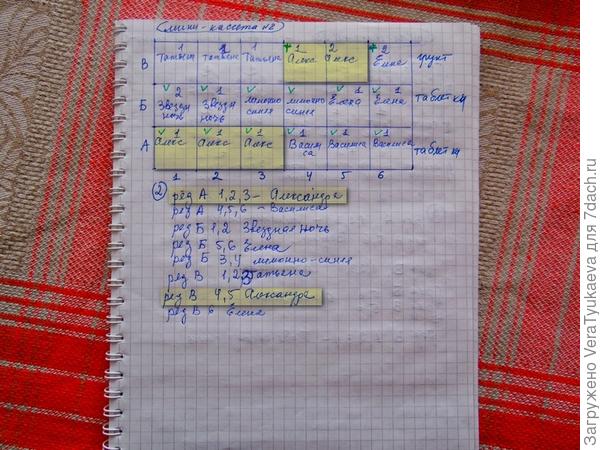 мини-кассета №2
1 1 1 1 2 2
В Татьян Татьяна Татьяна Алекс Алекс Елена грунт
2 1 1 1 1
Б Звездн ночь Звездн ночь лимонно синяя лимонно синяя Елена Елена таблетки
1 1 1 1 1 1
А Алекс Алекс Алекс Васили са Василиса Василиса таблетки
1 2 3 4 5 6
2 ряд А 1,2,3 - Александра
ряд А 4,5,6 - Василиса
ряд Б 1,2 Звездная ночь
ряд Б 5,6 Елена
ряд Б 3,4 лимонно-синяя
ряд В 1,2,3 Татьяна
ряд В 4,5 Александра
ряд В 6 Елена
Загружено VeraTyukaeva для 7dach.ru